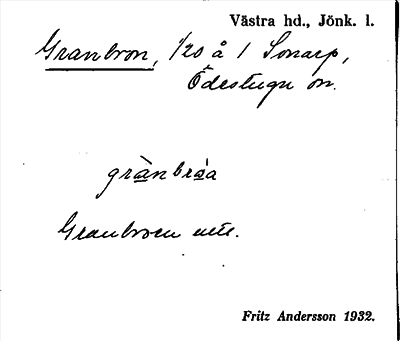 Västra hd., Jönk. l.
Granbron, 1/20 å 1 Sonarp,
Ödestugu sn.
grànbróa
Granbroen
Fritz Andersson 1932.